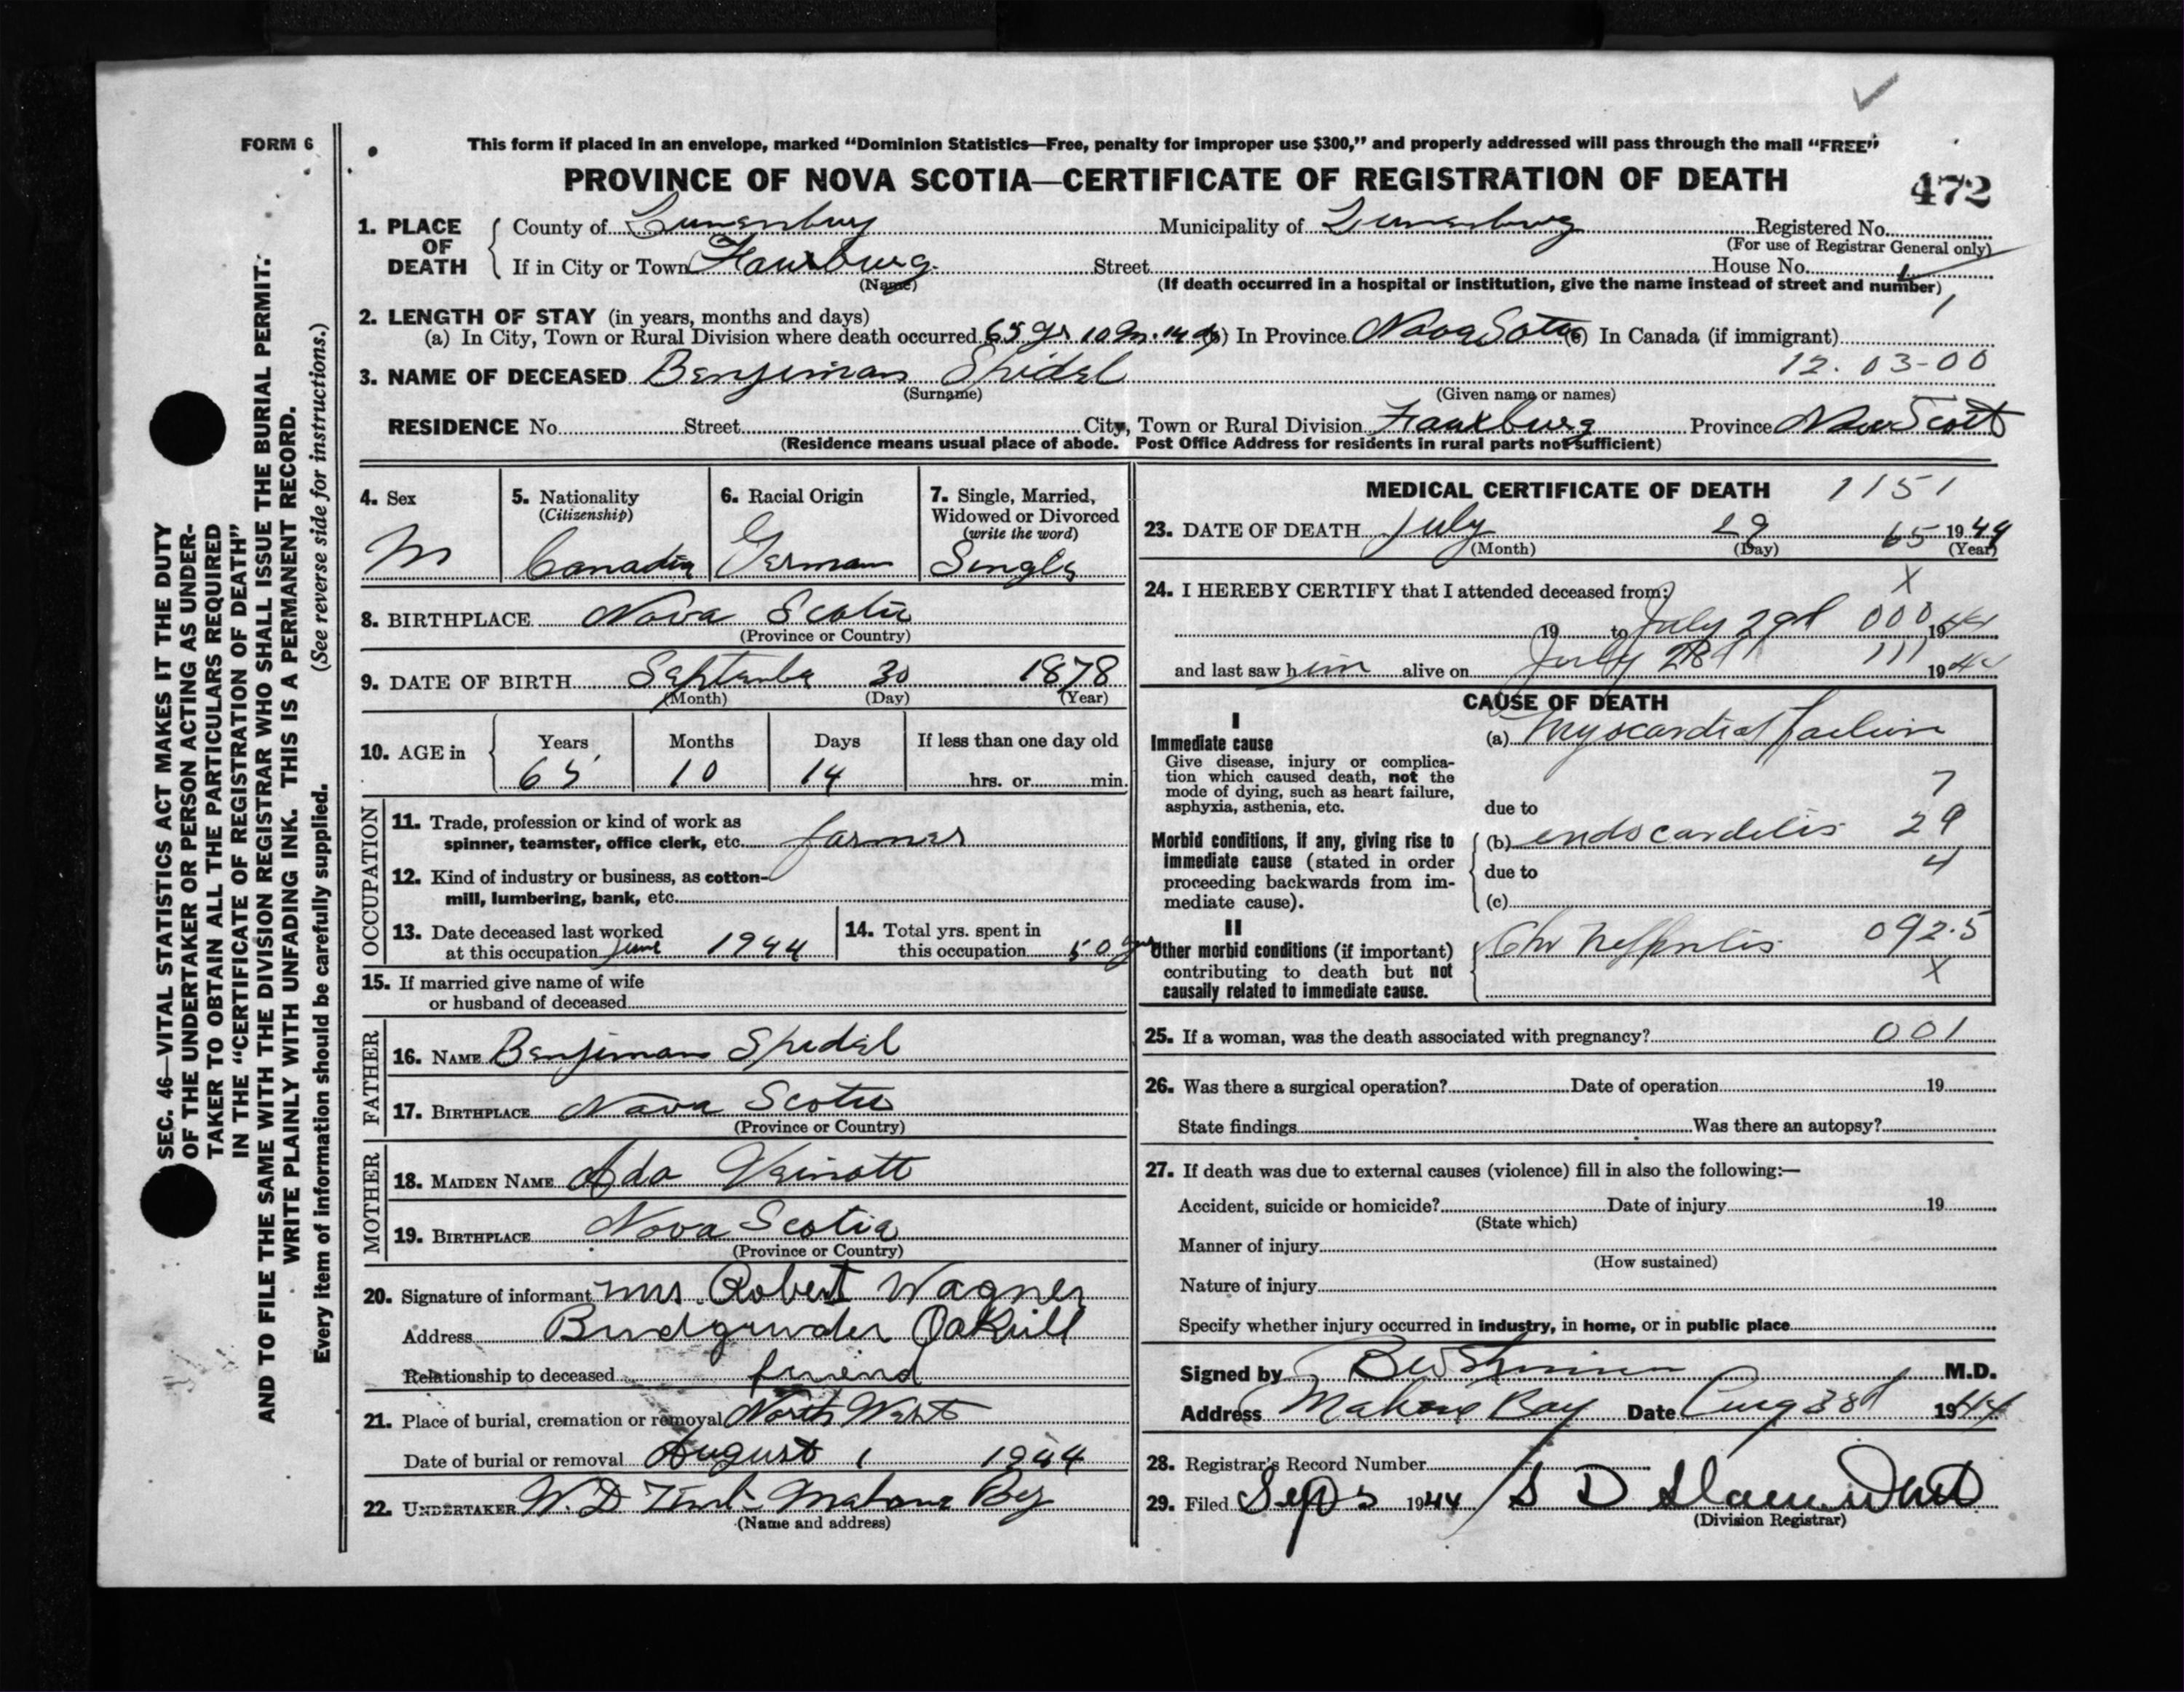 FORM 6
This form if placed in an envelope, marked “Dominion Statistics—Free, penalty for improper use $300,” and properly addressed will pass through the mail “FREE”
PROVINCE OF NOVA SCOTIA—CERTIFICATE OF REGISTRATION OF DEATH
472
1. PLACE OF DEATH
County of Lunenburg Municipality of Lunenburg Registered No.
(For use of Registrar General only)
If in City or Town Fauxburg Street House No.
(Name) (If death occurred in a hospital or institution, give the name instead of street and number)
2. LENGTH OF STAY (in years, months and days)
(a) In City, Town or Rural Division where death occurred 65 yr 10 m. 14 ds (b) In Province Nova Scotia (c) In Canada (if immigrant)
3. NAME OF DECEASED Benjiman Spidel 12.03-00
(Surname) (Given name or names)
RESIDENCE No. Street City, Town or Rural Division Fauxburg Province Nova Scoti
(Residence means usual place of abode. Post Office Address for residents in rural parts not sufficient)
4. Sex M
5. Nationality (Citizenship) Canadian
6. Racial Origin German
7. Single, Married, Widowed or Divorced (write the word) Single
8. BIRTHPLACE Nova Scotia
(Province or Country)
9. DATE OF BIRTH September 30 1878
(Month) (Day) (Year)
10. AGE in Years 65 Months 10 Days 14 If less than one day old hrs. or min.
OCCUPATION
11. Trade, profession or kind of work as
spinner, teamster, office clerk, etc. farmer
12. Kind of industry or business, as cotton-
mill, lumbering, bank, etc.
13. Date deceased last worked
at this occupation June 1944
14. Total yrs. spent in
this occupation 50 yrs
15. If married give name of wife
or husband of deceased
FATHER
16. NAME Benjiman Spidel
17. BIRTHPLACE Nova Scotia
(Province or Country)
MOTHER
18. MAIDEN NAME Ada Veinott
19. BIRTHPLACE Nova Scotia
(Province or Country)
20. Signature of informant Mrs. Robert Wagner
Address Oakhill
Relationship to deceased friend
21. Place of burial, cremation or removal North West
Date of burial or removal August 1 1944
22. UNDERTAKER W. D. Mahone Bay
(Name and address)
MEDICAL CERTIFICATE OF DEATH 1151
23. DATE OF DEATH July 29 65 1944
(Month) (Day) (Year)
X
24. I HEREBY CERTIFY that I attended deceased from:
19 to July 29d 000 1944
and last saw him alive on July 28d 111 1944
CAUSE OF DEATH
I
Immediate cause
Give disease, injury or complica-
tion which caused death, not the
mode of dying, such as heart failure,
asphyxia, asthenia, etc.
(a) Myocardial failure
7
due to
Morbid conditions, if any, giving rise to
immediate cause (stated in order
proceeding backwards from im-
mediate cause).
(b) endocarditis 29
due to 4
(c)
II
Other morbid conditions (if important)
contributing to death but not
causally related to immediate cause.
Chr Nephritis 092.5
X
25. If a woman, was the death associated with pregnancy? 001
26. Was there a surgical operation? Date of operation 19
State findings Was there an autopsy?
27. If death was due to external causes (violence) fill in also the following:—
Accident, suicide or homicide? Date of injury 19
(State which)
Manner of injury
(How sustained)
Nature of injury
Specify whether injury occurred in industry, in home, or in public place
Signed by M.D.
Address Mahone Bay Date Aug 1944
28. Registrar's Record Number
29. Filed Sep 1944 S D
(Division Registrar)
SEC. 46—VITAL STATISTICS ACT MAKES IT THE DUTY
OF THE UNDERTAKER OR PERSON ACTING AS UNDER-
TAKER TO OBTAIN ALL THE PARTICULARS REQUIRED
IN THE “CERTIFICATE OF REGISTRATION OF DEATH”
AND TO FILE THE SAME WITH THE DIVISION REGISTRAR WHO SHALL ISSUE THE BURIAL PERMIT.
WRITE PLAINLY WITH UNFADING INK. THIS IS A PERMANENT RECORD.
Every item of information should be carefully supplied. (See reverse side for instructions.)